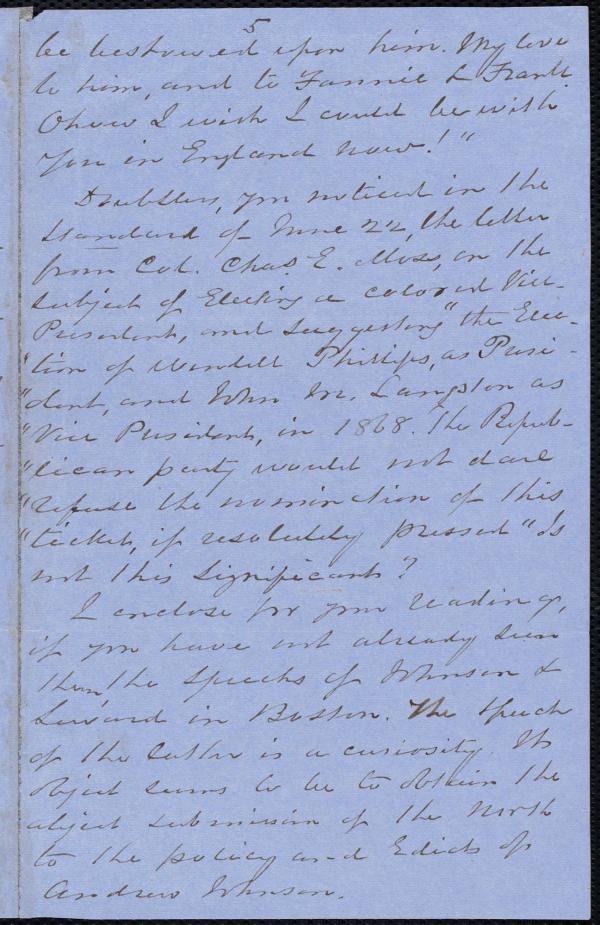 5
be bestowed upon him. My love
to him, and to Fannie & Frank
Oh how I wish I could be with
you in England now!"
Doubtless, you noticed in the
Standard of June 22, the letter
from Col. Chas. E. Moss, on the
subject of Electing a colored Vice-
President, and suggesting "the Elec-
"tion of Wendell Phillips, as Presi-
"dent, and John M. Langston as
"Vice President, in 1868. The Repub-
"lican party would not dare
"refuse the nomination of this
"ticket, if resolutely pressed" Is
not this significant?
I enclose for your reading,
if you have not already seen
them, the speechs of Johnson &
Seward in Boston. The speech
of the latter is a curiosity. Its
object seems to be to obtain the
abject submission of the North
to the policy and Edicts of
Andrew Johnson.